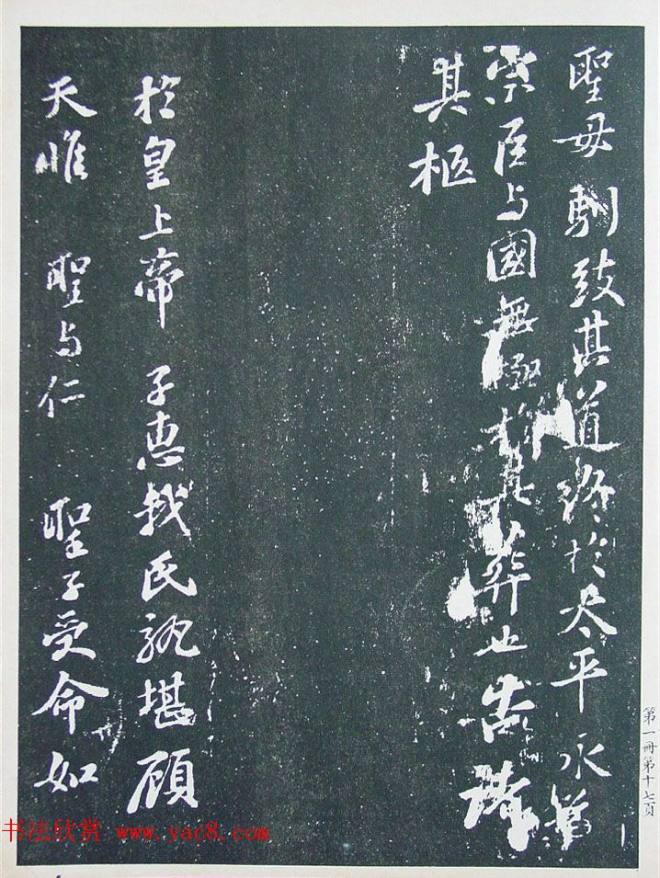 聖母馴致其道終於太平永為
宗臣与國無極於其葬也告諸
其柩
於皇上帝子惠我民孰堪顧
天惟聖与仁聖子受命如
第一冊第十七頁
书法欣赏 www.yac8.com